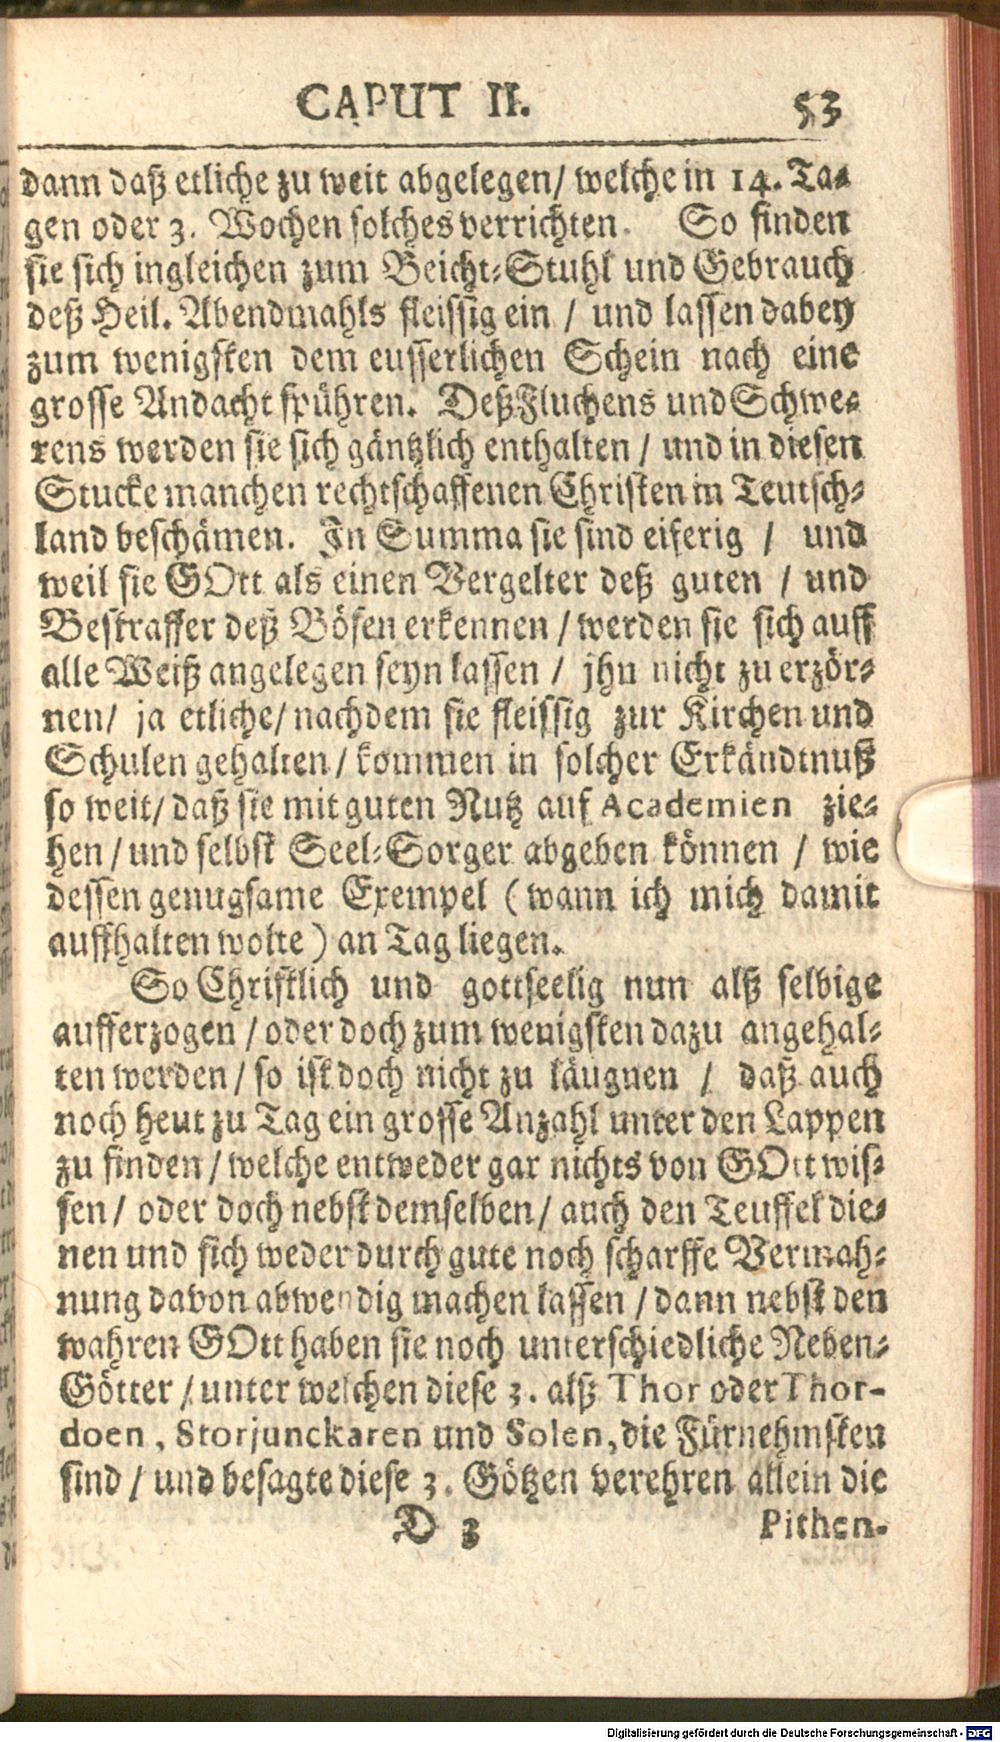 CAPUT II. 53
dann daß etliche zu weit abgelegen/ welche in 14. Ta-
gen oder 3. Wochen solches verrichten. So finden
sie sich ingleichen zum Beicht-Stuhl und Gebrauch
deß Heil. Abendmahls fleissig ein / und lassen dabey
zum wenigsten dem eusserlichen Schein nach eine
grosse Andacht spühren. Deß Fluchens und Schwe-
rens werden sie sich gäntzlich enthalten / und in diesen
Stucke manchen rechtschaffenen Christen in Teutsch-
land beschämen. In Summa sie sind eiferig / und
weil sie GOtt als einen Vergelter deß guten / und
Bestraffer deß Bösen erkennen / werden sie sich auff
alle Weiß angelegen seyn lassen / jhn nicht zu erzör-
nen/ ja etliche/ nachdem sie fleissig zur Kirchen und
Schulen gehalten / kommen in solcher Erkändtnuß
so weit/ daß sie mit guten Nutz auf Academien zie-
hen / und selbst Seel-Sorger abgeben können / wie
dessen genugsame Exempel ( wann ich mich damit
auffhalten wolte ) an Tag liegen.
So Christlich und gottseelig nun alß selbige
aufferzogen / oder doch zum wenigsten dazu angehal-
ten werden / so ist doch nicht zu läugnen / daß auch
noch heut zu Tag ein grosse Anzahl unter den Lappen
zu finden / welche entweder gar nichts von GOtt wis-
sen / oder doch nebst demselben / auch den Teuffel die-
nen und sich weder durch gute noch scharffe Vermah-
nung davon abwendig machen lassen / dann nebst den
wahren GOtt haben sie noch unterschiedliche Neben-
Götter / unter welchen diese 3. alß Thor oder Thor-
doen, Storjunckaren und Solen, die Fürnehmsten
sind / und besagte diese 3. Götzen verehren allein die
D 3 Pithen-
Digitalisierung gefördert durch die Deutsche Forschungsgemeinschaft - DFG